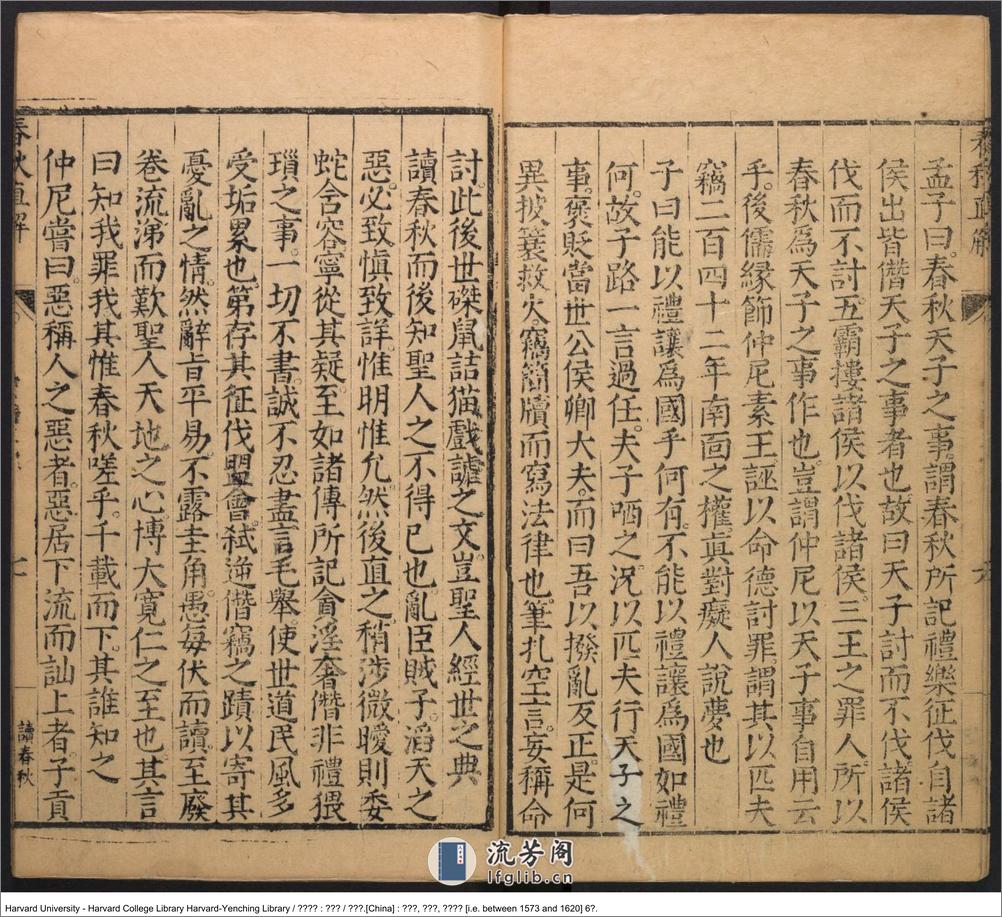 春秋直解
孟子曰春秋天子之事謂春秋所記禮樂征伐自諸
侯出皆僭天子之事者也故曰天子討而不伐諸侯
伐而不討五霸摟諸侯以伐諸侯三王之罪人所以
春秋爲天子之事作也豈謂仲尼以天子事自用云
乎後儒緣節仲尼素王誣以命德討罪謂其以匹夫
竊二百四十二年南面之權真對癡人說夢也
子曰能以禮讓爲國乎何有不能以禮讓爲國如禮
何故子路一言過任夫子哂之況以匹夫行天子之
事褒貶當世公侯卿大夫而曰吾以撥亂反正是何
異披簑救火竊簡牘而寫法律也筆扎空言妄稱命
討此後世磔鼠詰猫戲謔之文豈聖人經世之典
讀春秋而後知聖人之不得已也亂臣賊子滔天之
惡必致慎致詳惟明惟允然後直之稍涉微曖則委
蛇含容寧從其疑至如諸傳所記貪淫奢僭非禮猥
瑣之事一切不書誠不忍盡言毛舉使世道民風多
受垢累也第存其征伐盟會弒逆僭竊之蹟以寄其
憂亂之情然辭旨平易不露圭角愚每伏而讀至廢
卷流涕而歎聖人天地之心博大寬仁之至也其言
曰知我罪我其惟春秋嗟乎千載而下其誰知之
仲尼嘗曰惡稱人之惡者惡居下流而訕上者子貢
春秋直解
讀春秋
流芳阁
lfglib.cn
Harvard University - Harvard College Library Harvard-Yenching Library / ???? : ??? / ???.[China] : ???, ???, ???? [i.e. between 1573 and 1620] 6?.